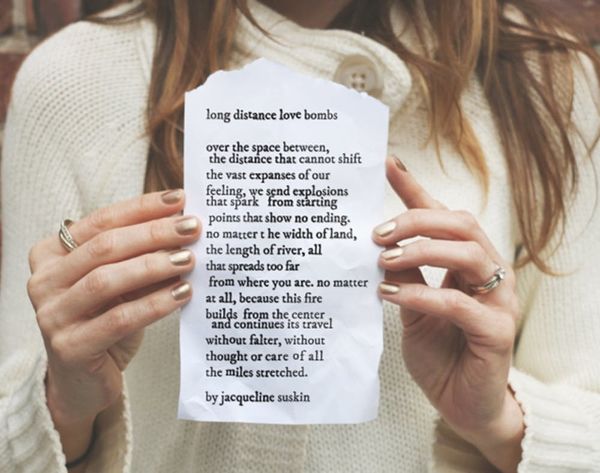 long distance love bombs
over the space between,
the distance that cannot shift
the vast expanses of our
feeling, we send explosions
that spark from starting
points that show no ending.
no matter t he width of land,
the length of river, all
that spreads too far
from where you are. no matter
at all, because this fire
builds from the center
and continues its travel
without falter, without
thought or care of all
the miles stretched.
by jacqueline suskin